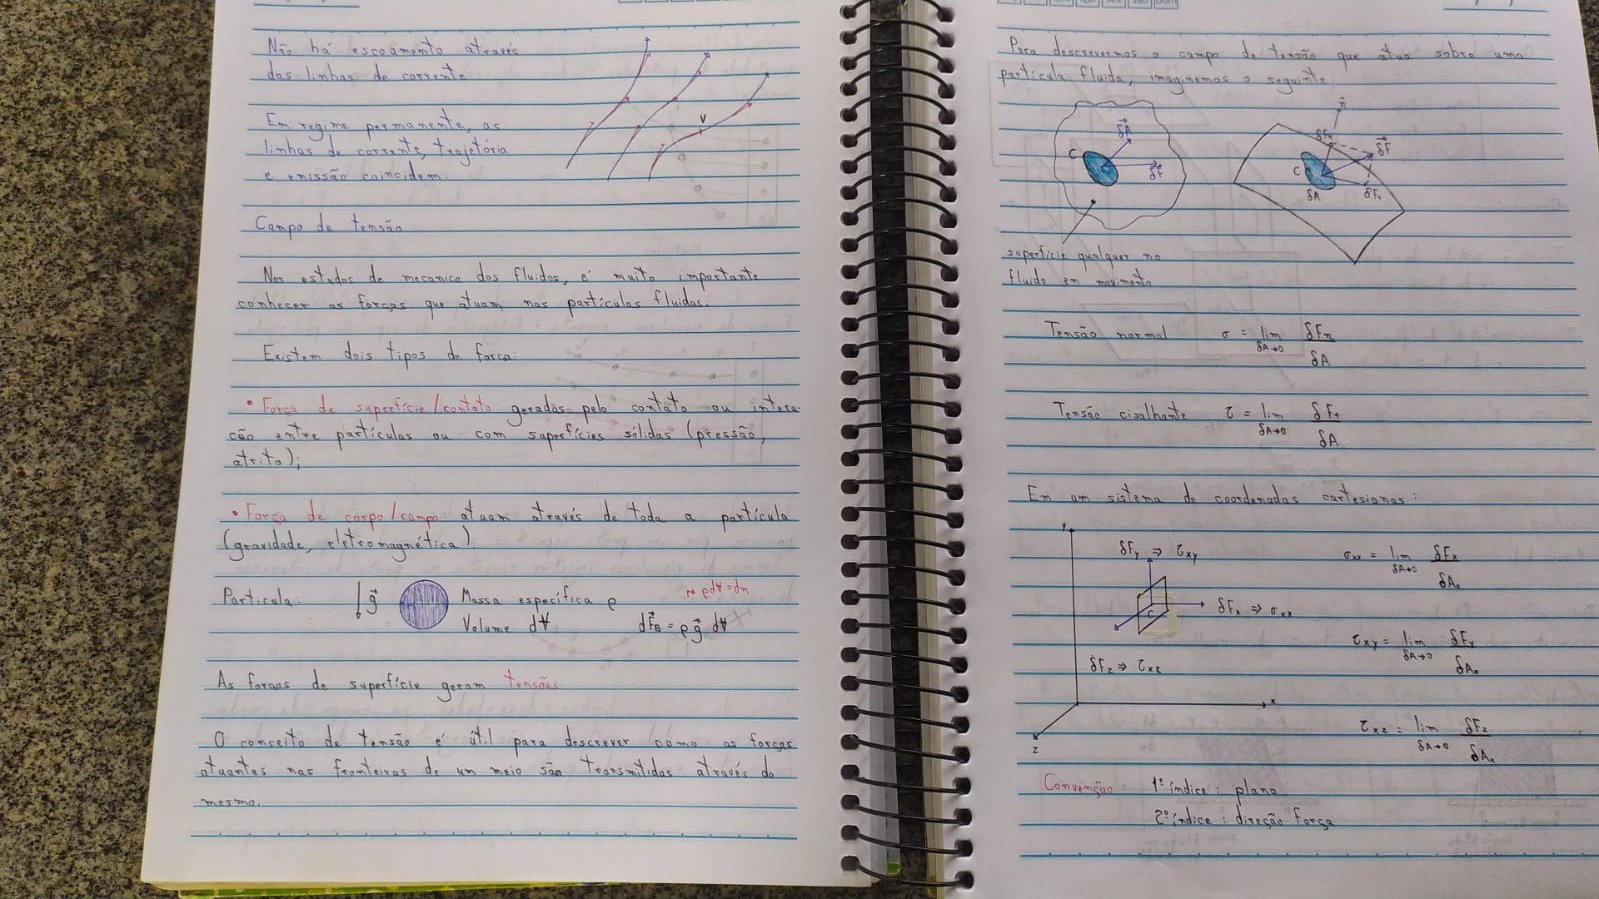 Não há escoamento através
das linhas de corrente
Em regime permanente, as
linhas de corrente, trajetória
e emissão coincidem.
V
Campo de tensão
Nos estudos de mecanica dos fluidos, é muito importante
conhecer as forças que atuam nas partículas fluidas.
Existem dois tipos de força:
• Força de superfície/contato: gerados pelo contato ou intera-
ção entre partículas ou com superfícies sólidas (pressão,
atrito);
• Força de corpo/campo: atuam através de toda a partícula
(gravidade, eletromagnética).
Partícula: g⃗ Massa específica ρ ↦ ρdV̶ = dm
Volume dV̶ dF⃗B = ρ g⃗ dV̶
As forças de superfície geram tensões
O conceito de tensão é útil para descrever como as forças
atuantes nas fronteiras de um meio são transmitidas através do
mesmo.
Para descrevermos o campo de tensão que atua sobre uma
partícula fluida, imaginemos o seguinte:
C δA⃗ δF⃗
n̂ δFn δF⃗ C δA δFt
superfície qualquer no
fluido em movimento
Tensão normal σ = lim δA→0 δFn/δA
Tensão cisalhante τ = lim δA→0 δFt/δA
Em um sistema de coordenadas cartesianas:
y
δFy ⇒ τxy
σxx = lim δA→0 δFx/δAx
C δFx ⇒ σxx
τxy = lim δA→0 δFy/δAx
δFz ⇒ τxz
x
τxz = lim δA→0 δFz/δAx
z
Convenção: 1º índice: plano
2º índice: direção força